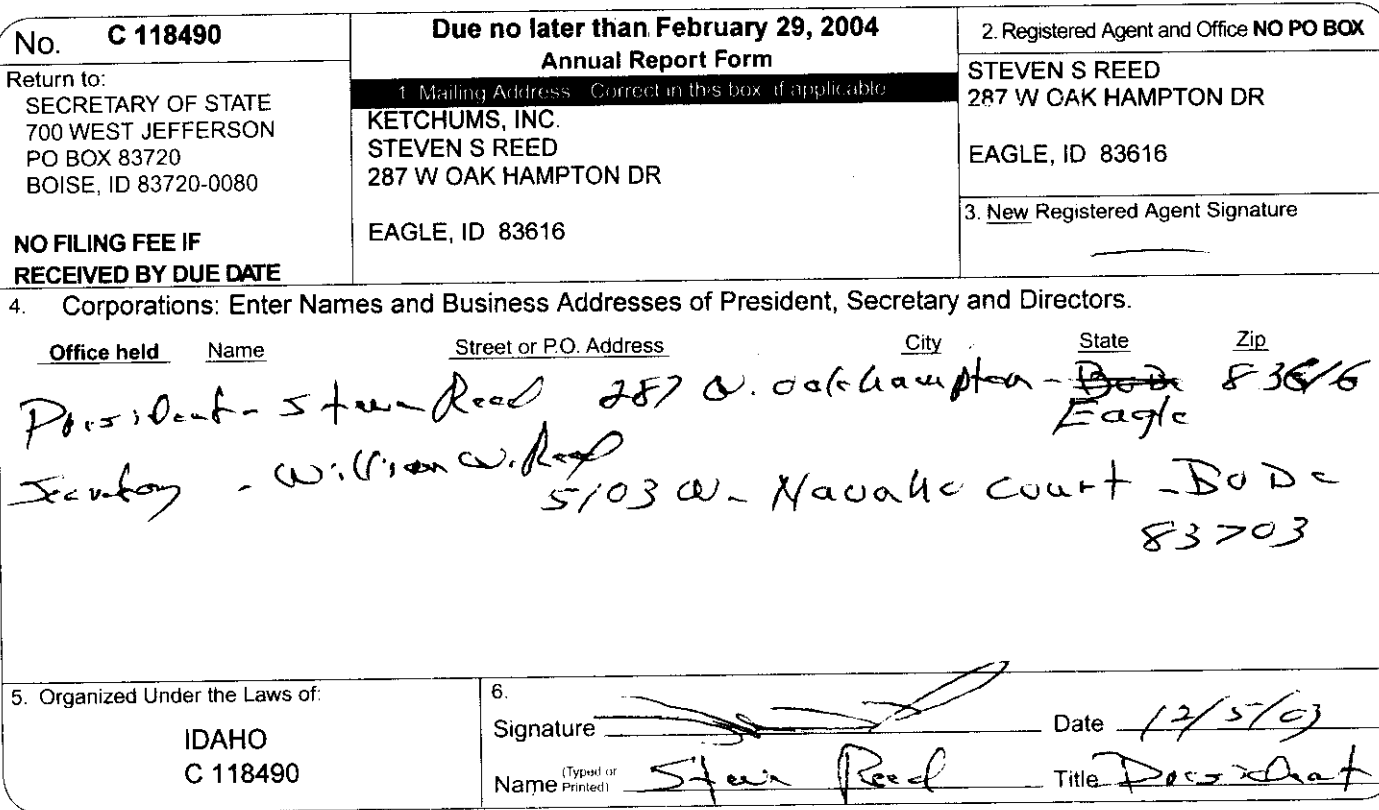 No. C 118490
Return to:
SECRETARY OF STATE
700 WEST JEFFERSON
PO BOX 83720
BOISE, ID 83720-0080
NO FILING FEE IF
RECEIVED BY DUE DATE
Due no later than February 29, 2004
Annual Report Form
1. Mailing Address Correct in this box if applicable
KETCHUMS, INC.
STEVEN S REED
287 W OAK HAMPTON DR
EAGLE, ID 83616
2. Registered Agent and Office NO PO BOX
STEVEN S REED
287 W OAK HAMPTON DR
EAGLE, ID 83616
3. New Registered Agent Signature
4. Corporations: Enter Names and Business Addresses of President, Secretary and Directors.
Office held Name Street or P.O. Address City State Zip
President - Steven Reed 287 W. oakhampton - 83616
Eagle
Secretary - William W. Reed
5103 W- Navaho Court -
83703
5. Organized Under the Laws of:
IDAHO
C 118490
6.
Signature
Date 12/5/03
Name (Typed or Printed) Steven Reed
Title President